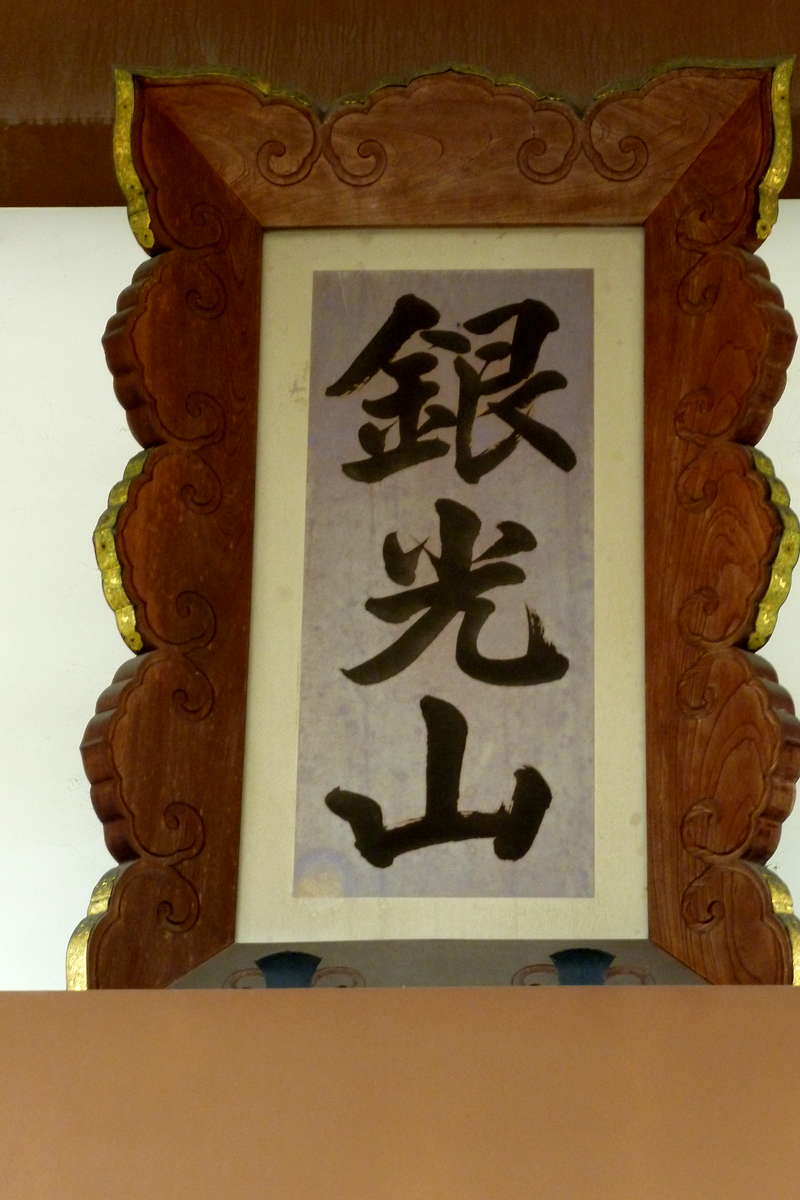 銀光山